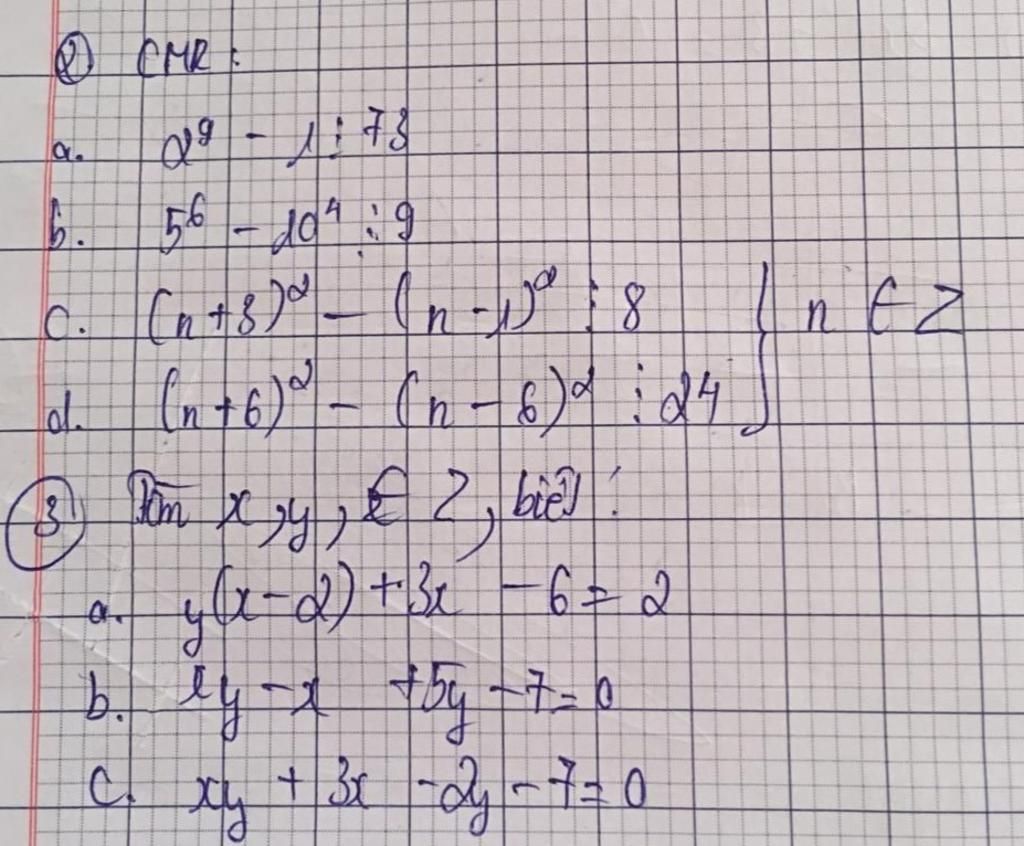 ② CMR :
a. 2⁹ - 1 ⋮ 73
b. 5⁶ - 10⁴ ⋮ 9
c. (n+3)² - (n-1)² ⋮ 8 } n ∈ Z
d. (n+6)² - (n-6)² ⋮ 24
③ Tìm x, y, ∈ Z, biết :
a. y(x-2) + 3x - 6 = 2
b. xy - x + 5y - 7 = 0
c. xy + 3x - 2y - 7 = 0